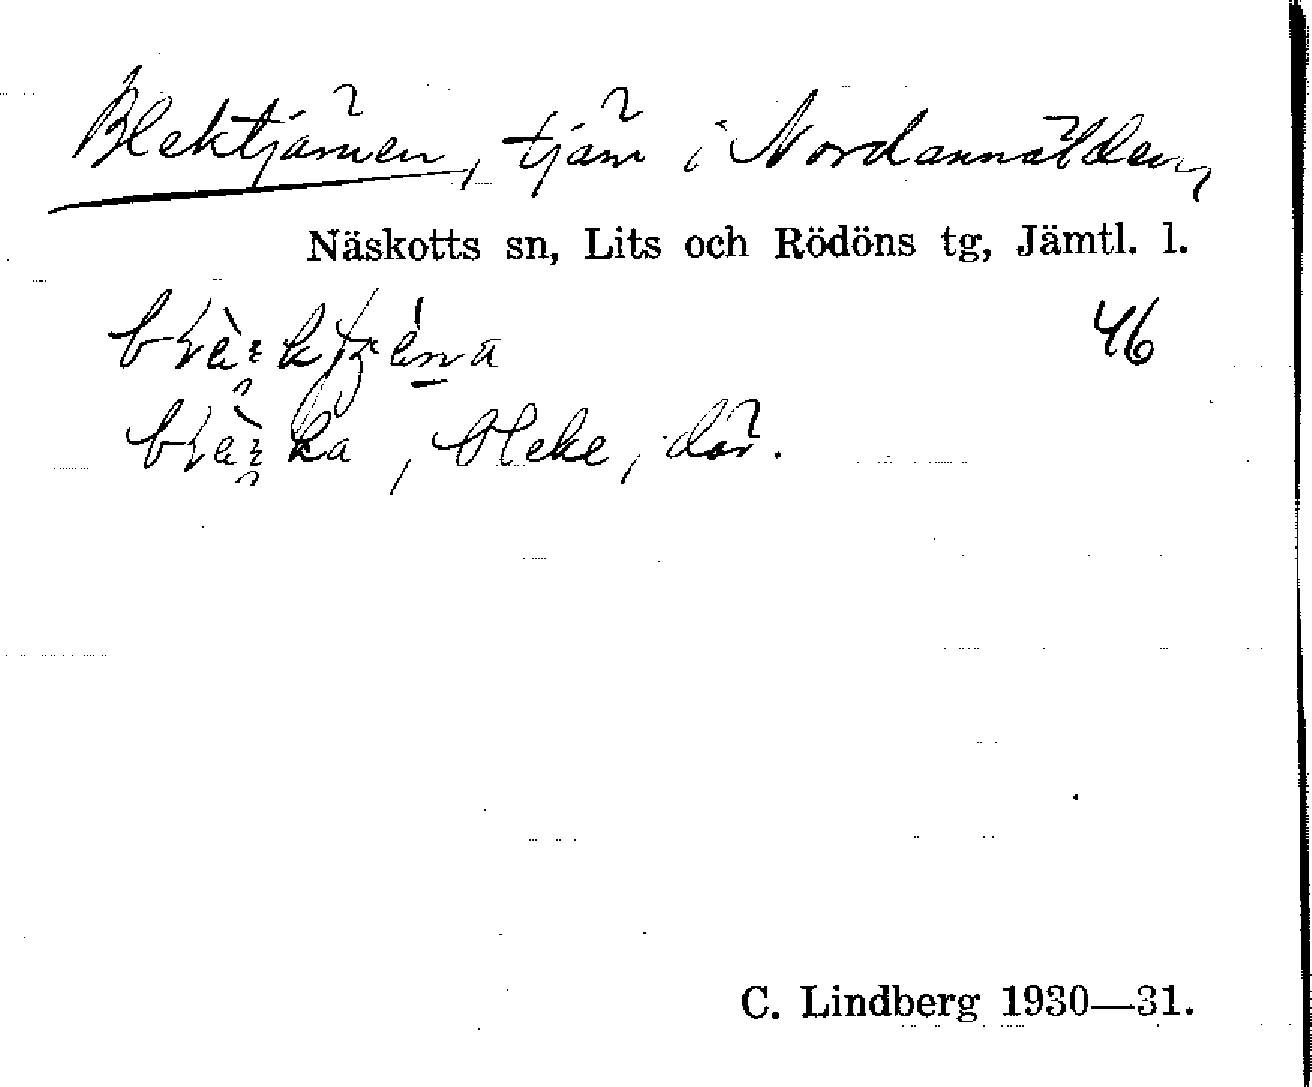 Blektjärnen, tjärn i Nordannälden,
Näskotts sn, Lits och Rödöns tg, Jämtl. l.
46
, bleke, där.
C. Lindberg 1930—31.